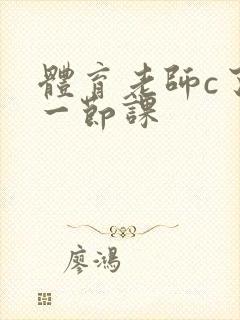 體育老師c了
一節課
廖鴻